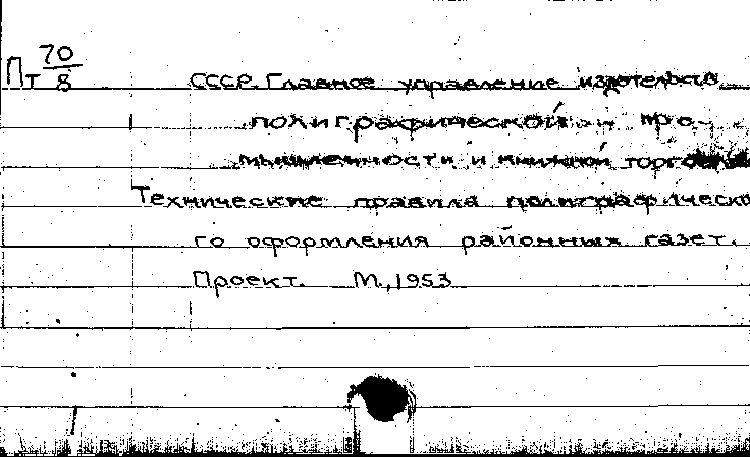 Пт 70/8
СССР. Главное управление издательств,
полиграфической про-
мышленности и книжной торговли
Технические правила полиграфическо
го оформления районных газет.
Проект. М., 1953